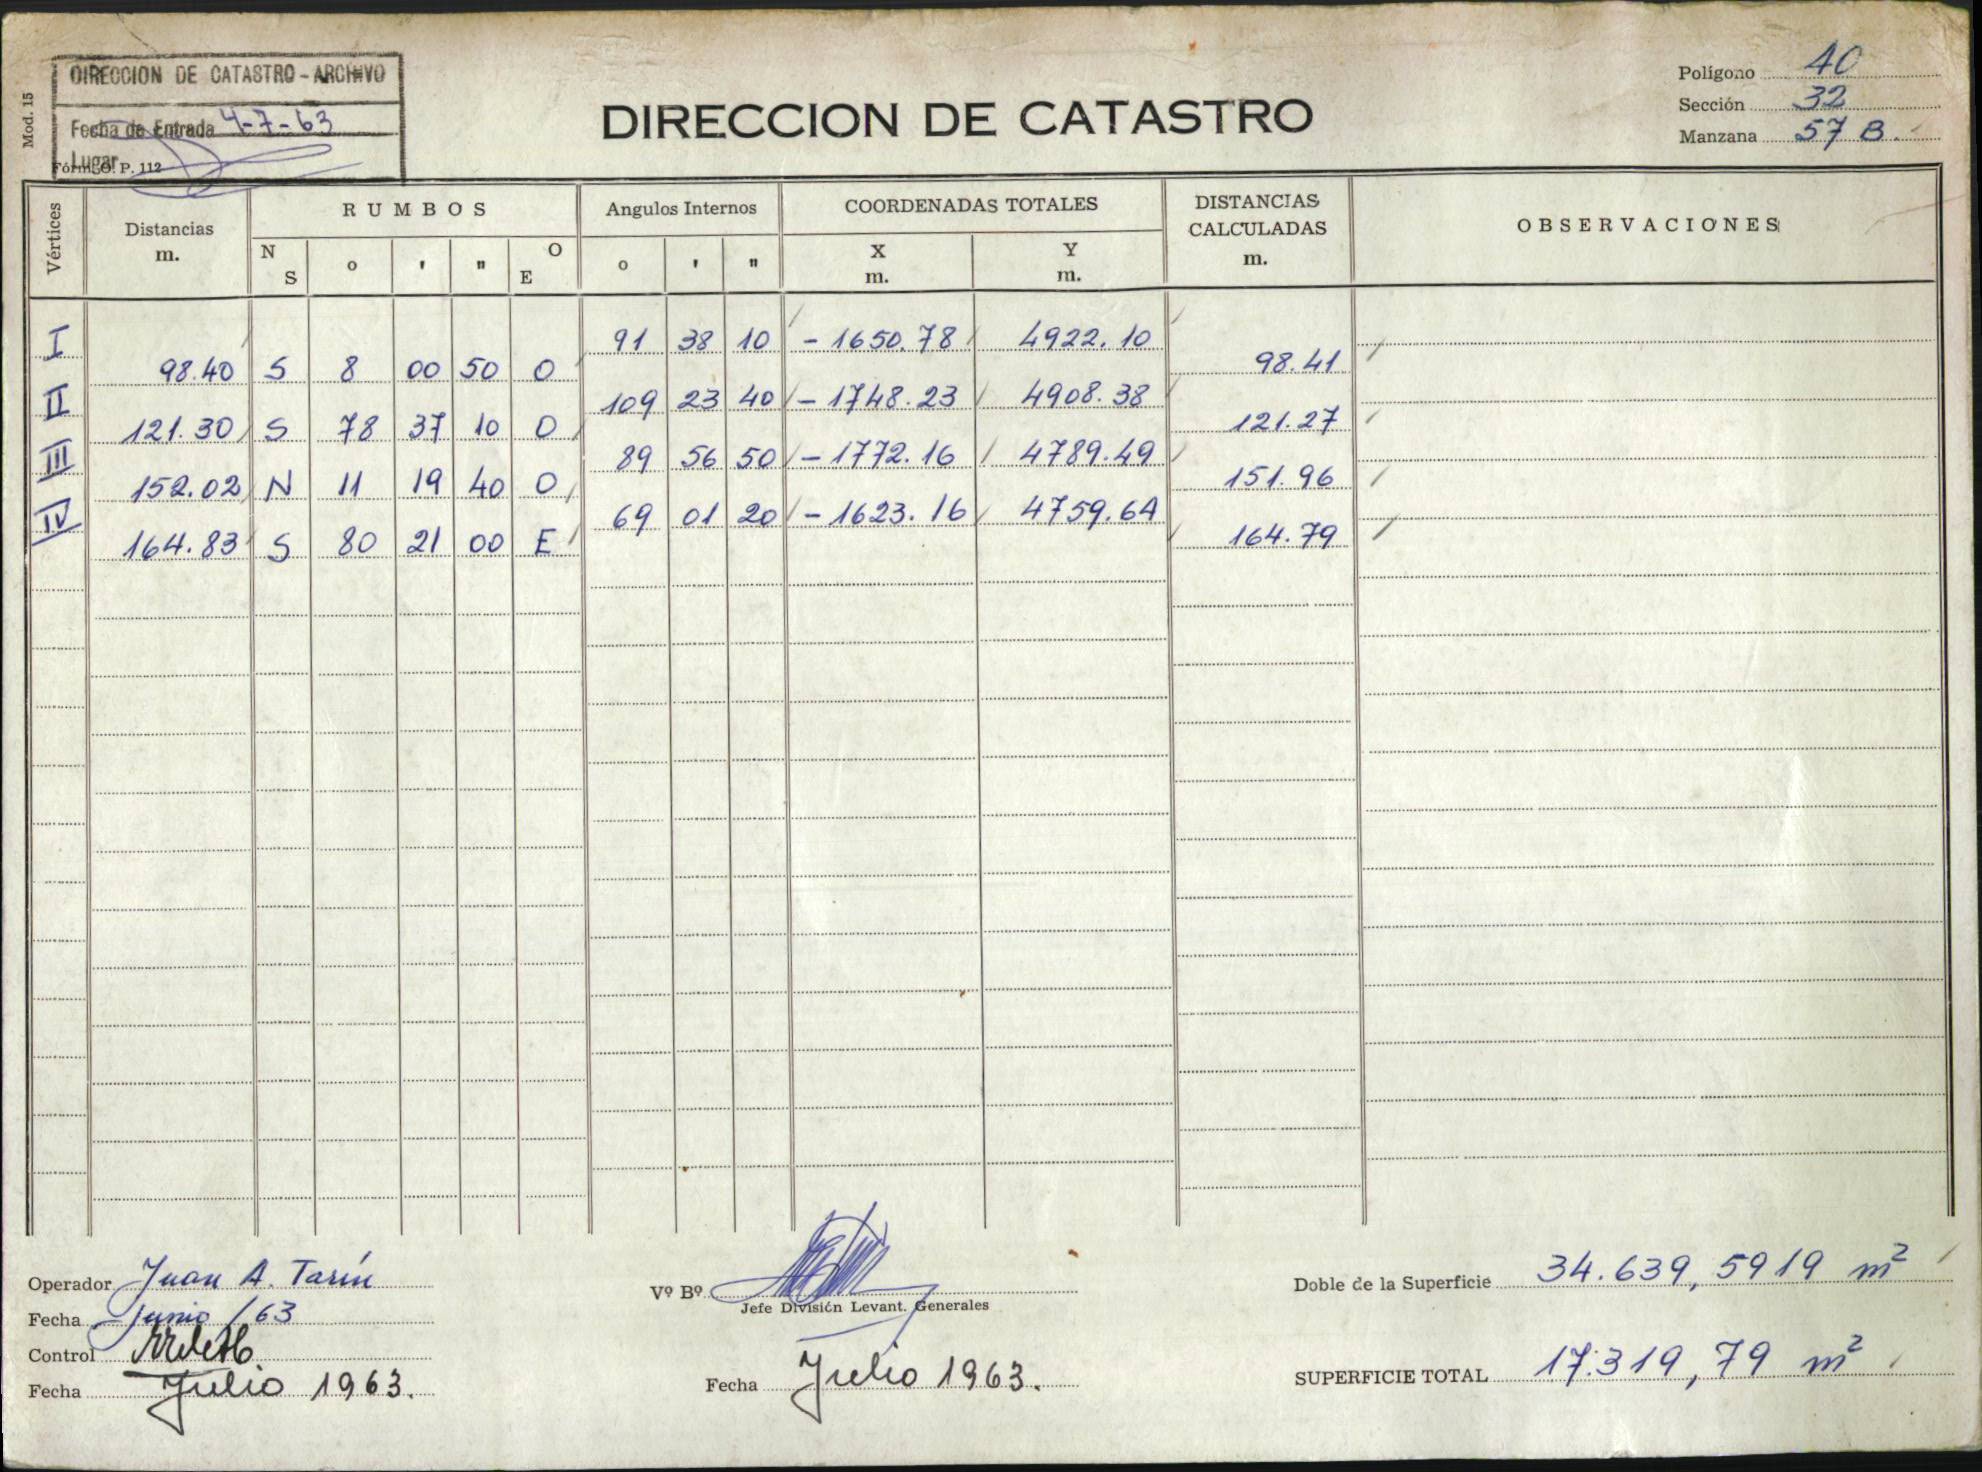 DIRECCION DE CATASTRO - ARCHIVO
Fecha de Entrada 4-7-63
Lugar
Mod. 15
Fórm. O. P. 112
DIRECCION DE CATASTRO
Polígono 40
Sección 32
Manzana 57 B.
Vértices
Distancias
m.
RUMBOS
N S o ' " O E
Angulos Internos
o ' "
COORDENADAS TOTALES
X Y
m. m.
DISTANCIAS
CALCULADAS
m.
OBSERVACIONES
I 91 38 10 -1650.78 4922.10
98.40 S 8 00 50 O 98.41
II 109 23 40 -1748.23 4908.38
121.30 S 78 37 10 O 121.27
III 89 56 50 -1772.16 4789.49
152.02 N 11 19 40 O 151.96
IV 69 01 20 -1623.16 4759.64
164.83 S 80 21 00 E 164.79
Operador Juan A. Tarín
Fecha Junio /63
Control
Fecha Julio 1963.
Vº Bº
Jefe División Levant. Generales
Fecha Julio 1963.
Doble de la Superficie 34.639,5919 m²
SUPERFICIE TOTAL 17.319,79 m²